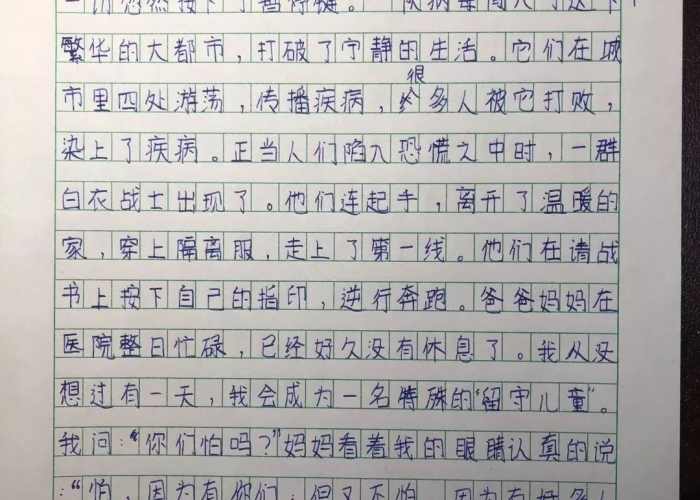 一切忽然按下了暂停键。一队病毒闯入了这个
繁华的大都市，打破了宁静的生活。它们在城
市里四处游荡，传播疾病，很多人被它打败，
染上了疾病。正当人们陷入恐慌之中时，一群
白衣战士出现了。他们连起手，离开了温暖的
家，穿上隔离服，走上了第一线。他们在请战
书上按下自己的指印，逆行奔跑。爸爸妈妈在
医院整日忙碌，已经好久没有休息了。我从没
想过有一天，我会成为一名特殊的“留守儿童”。
我问：“你们怕吗？”妈妈看着我的眼睛认真的说
：“怕，因为有你们；但又不怕，因为有